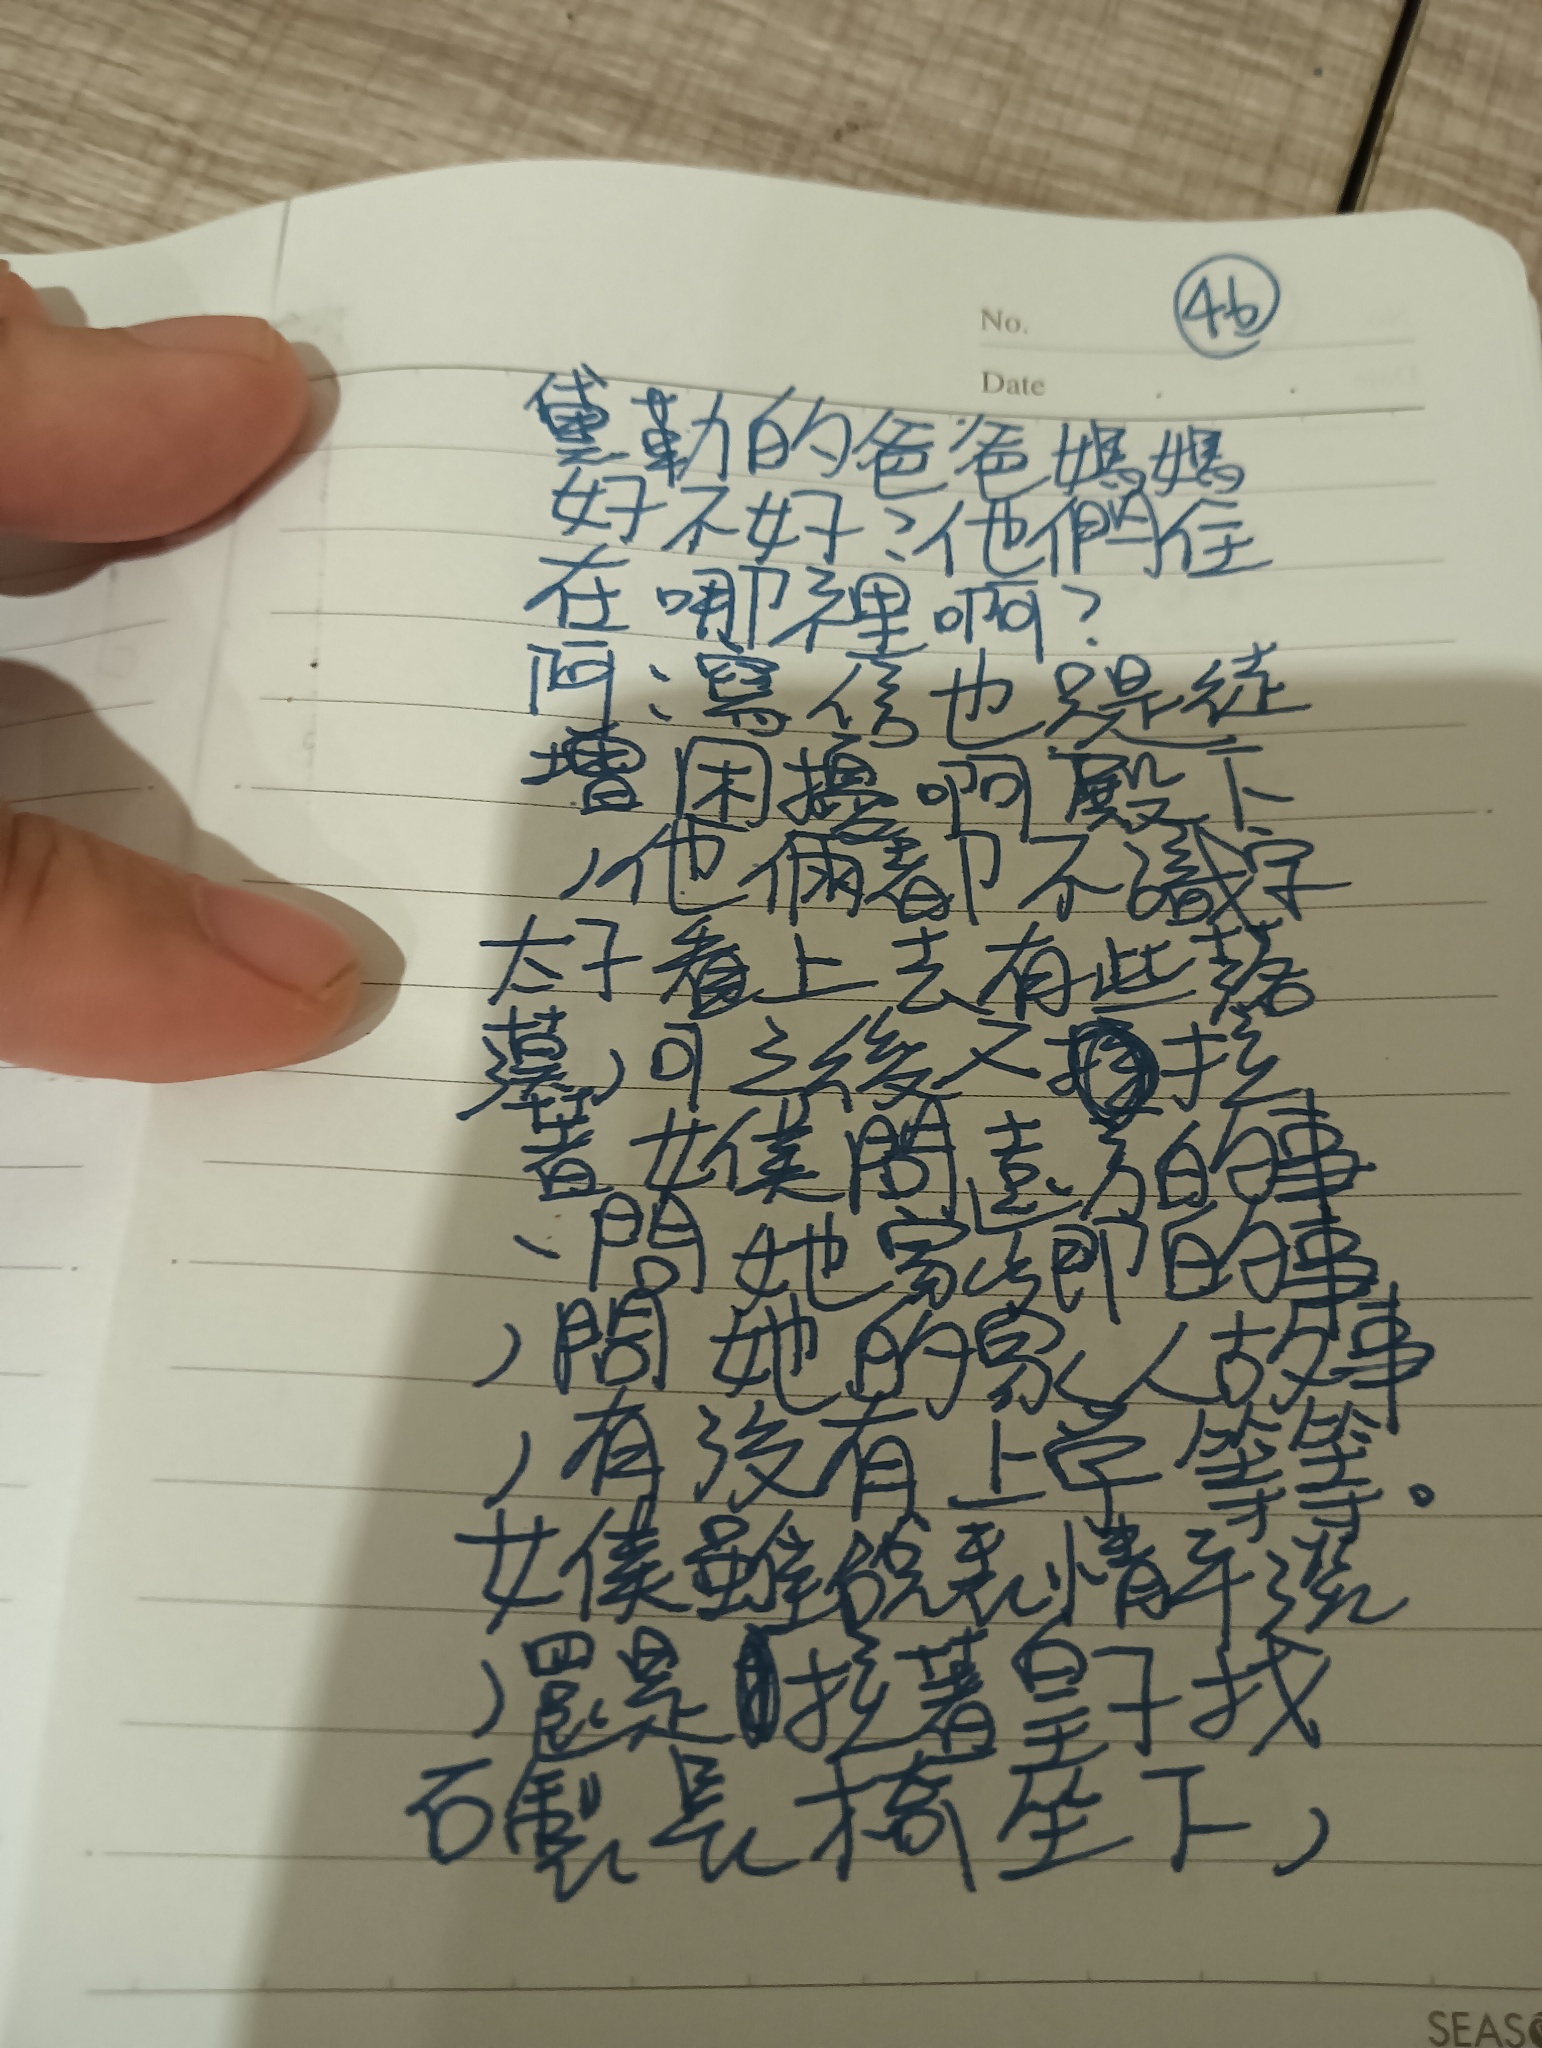 No. 46
Date
黛勒的爸爸媽媽
好不好?他們住
在哪裡啊?
阿:寫信也只是徒
增困擾啊殿下
,他倆都不識字
太子看上去有些落
寞,可之後又拉
著女僕問遠方的事
、問她家鄉的事
,問她的家人故事
,有沒有上学等等。
女僕雖說表情平淡
,還是拉著皇子找
石製長椅坐下,
SEASO